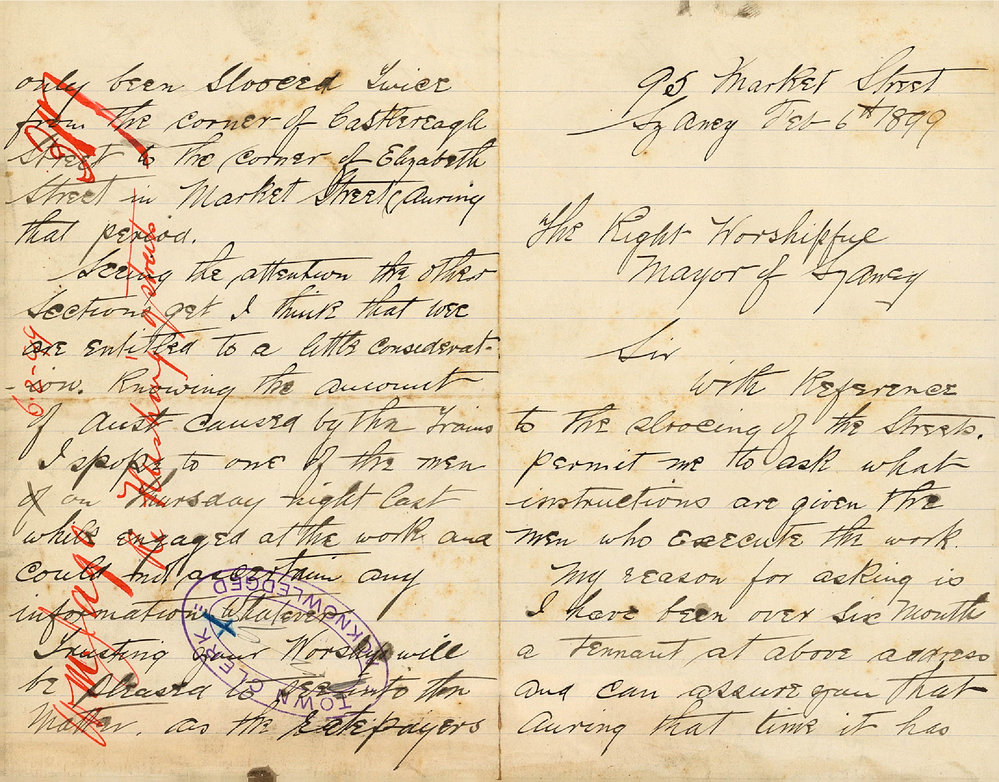 95 Market Street
Sydney Feb 6th 1899
The Right Worshipful
Mayor of Sydney
Sir
With Reference
to the slooeing of the Streets.
permit me to ask what
instructions are given the
men who execute the work.
My reason for asking is
I have been over six Month
a Tennant at above address
and can assure you that
during that time it has
only been slooeed twice
from the corner of Castlereagh
Street to the corner of Elizabeth
Street in Market Street during
that period.
Seeing the attention the other
Sections get I think that wee
are entitled to a little considerat-
-ion. Knowing the amount
of dust caused by the Trams
I spoke to one of the men
on Thursday night last
while engaged at the work and
could not ascertain any
information whatever
Trusting your Worship will
be pleased to see into the
Matter. as the Ratepayers
6-2-99
re Flushing of streets
TOWN CLERK
ACKNOWLEDGED